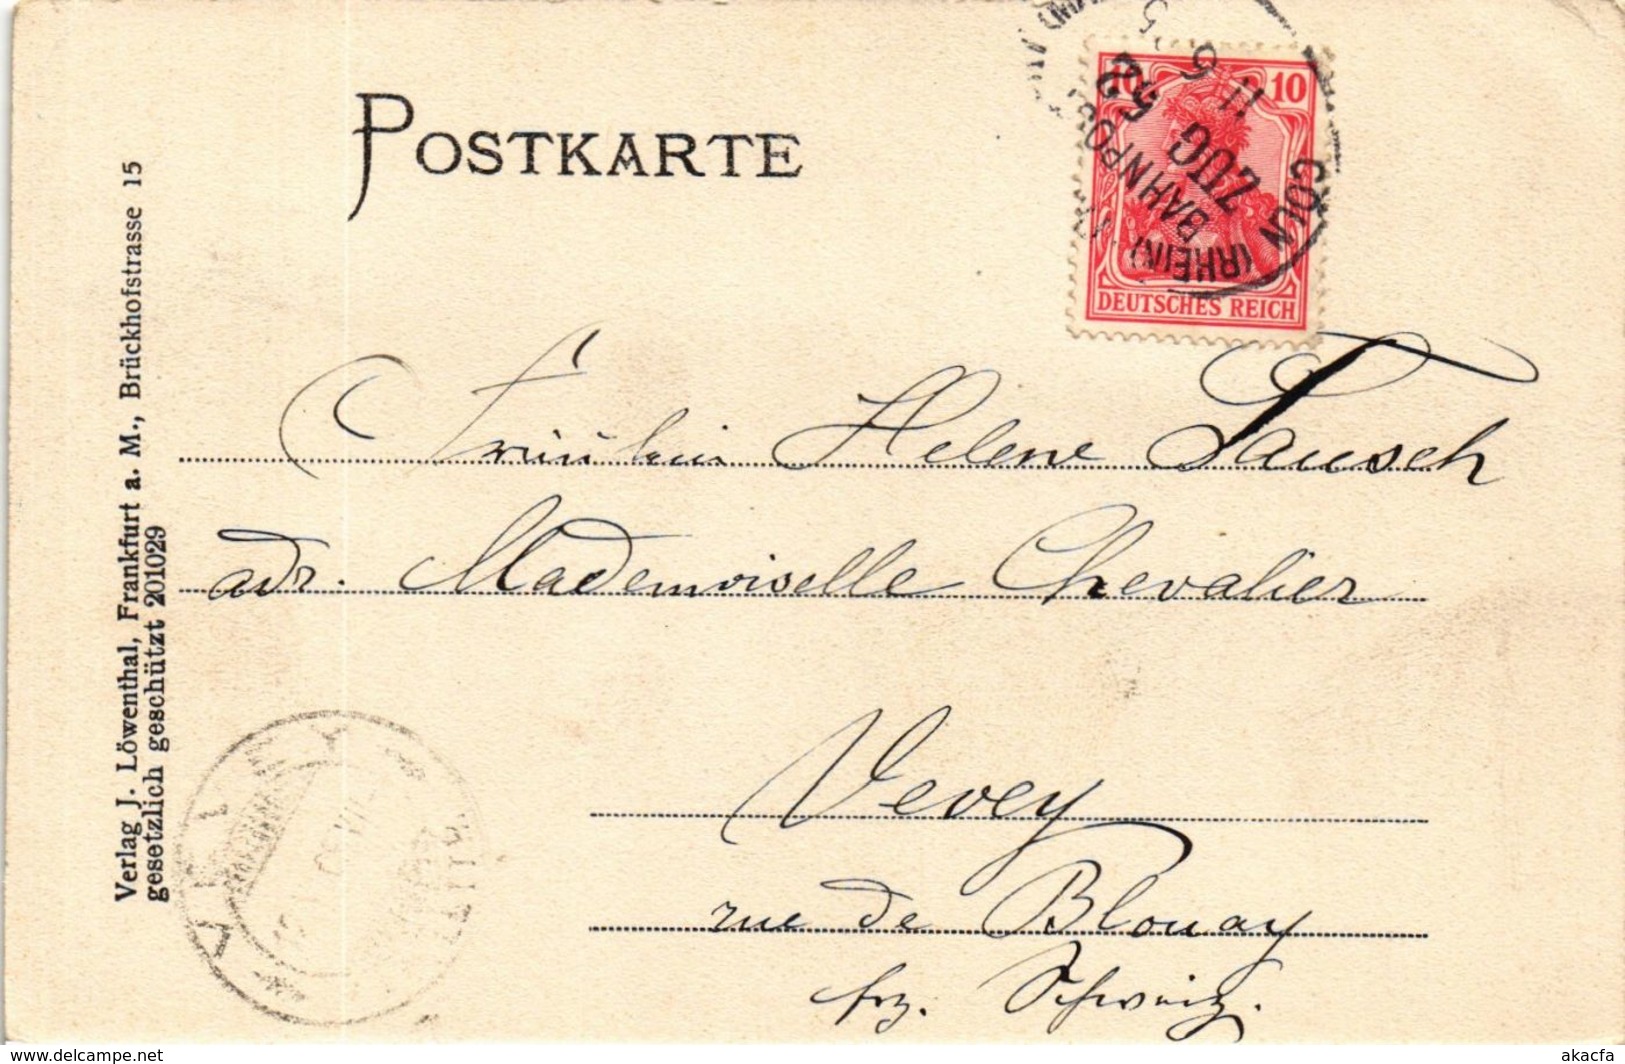 POSTKARTE
10 10
DEUTSCHES REICH
CÖLN (RHEIN)
BAHNPOST
ZUG
52
11 5
Fräulein Helene Tausch
adr. Mademoiselle Chevalier
Vevey
rue de Blonay
frz. Schweiz.
Verlag J. Löwenthal, Frankfurt a. M., Brückhofstrasse 15
gesetzlich geschützt 201029
delcampe.net
akacfa